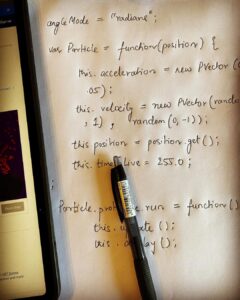 angleMode = "radians";
var Particle = function(position) {
this. acceleration = new PVector(
.05);
this. velocity = new PVector(rando
, 1) , random(0, -1));
this position = position.get();
this. time live = 255.0;
Particle. run = function()
this. ();
this. display();